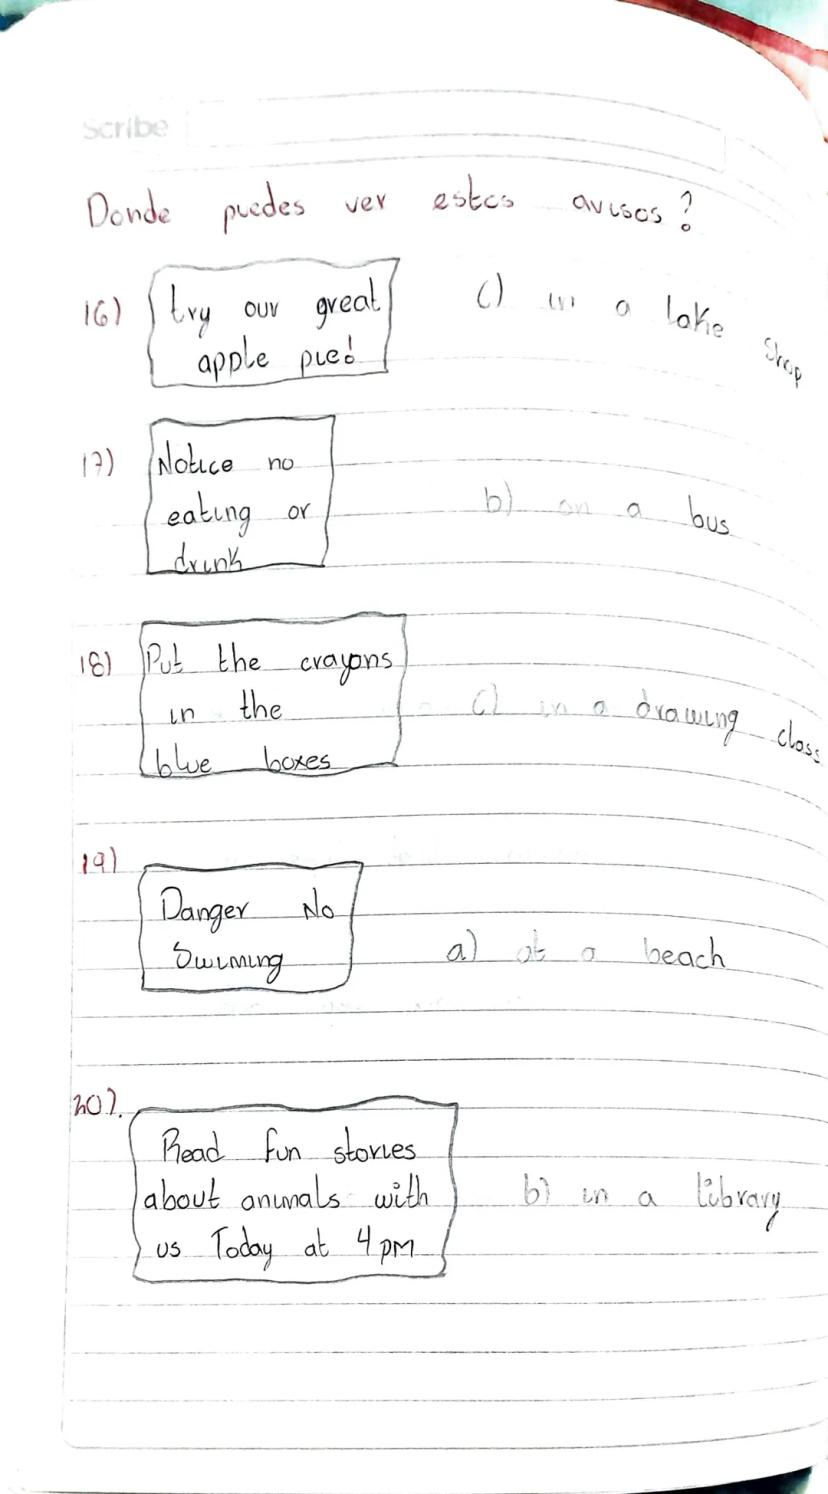 Scribe
Donde puedes ver estos avisos?
16) try our great
apple pie!
c) in a lake shop
17) Notice no
eating or
drink
b) on a bus
18) Put the crayons
in the
blue boxes
c) in a drawing class
19)
Danger No
Swiming
a) at a beach
20).
Read fun stories
about animals with
us Today at 4 pm
b) in a library